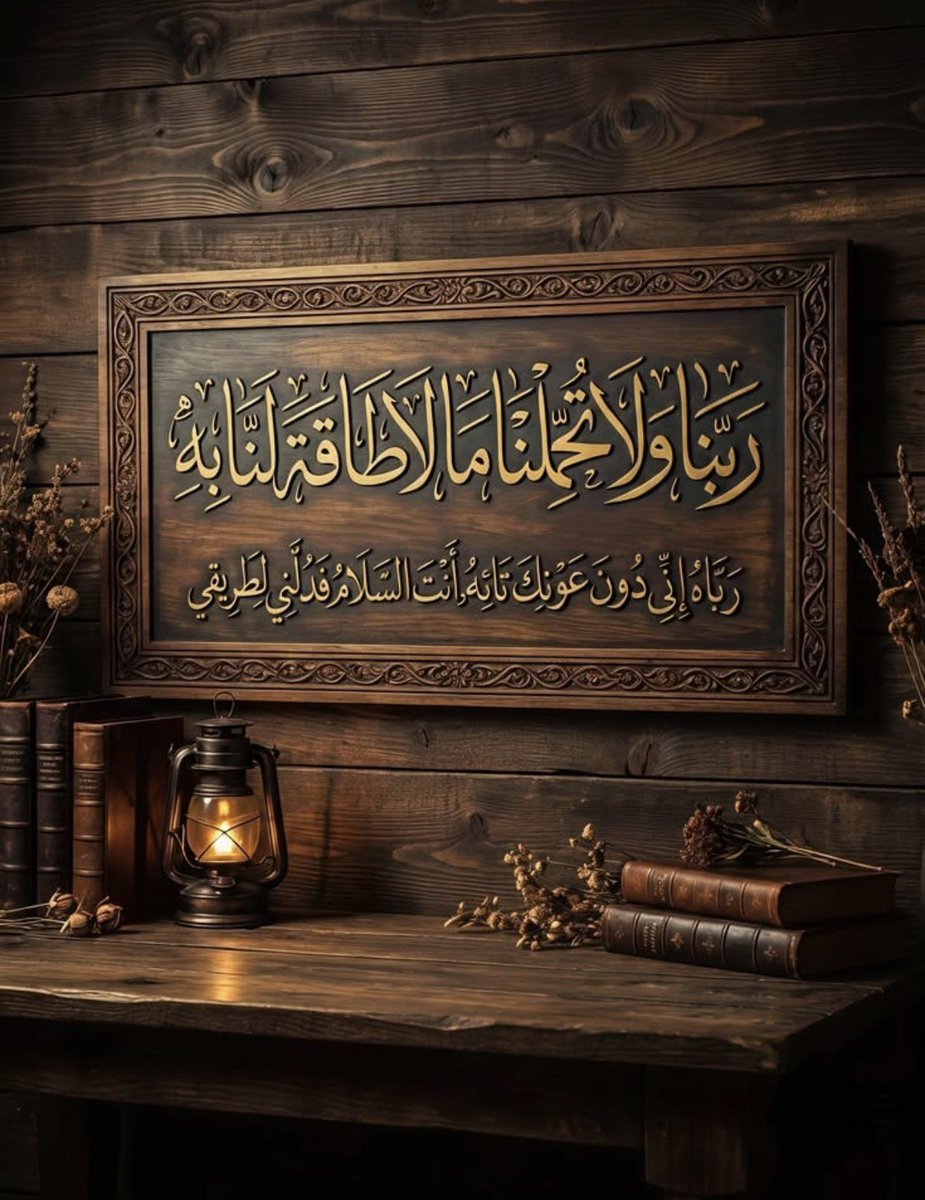 رَبَّنَا وَلَا تُحَمِّلْنَا مَا لَا طَاقَةَ لَنَا بِهِ
رَبَّاهُ إِنِّي دُونَ عَوْنِكَ تَائِهُ، أَنْتَ السَّلَامُ فَدُلَّنِي لِطَرِيقِي